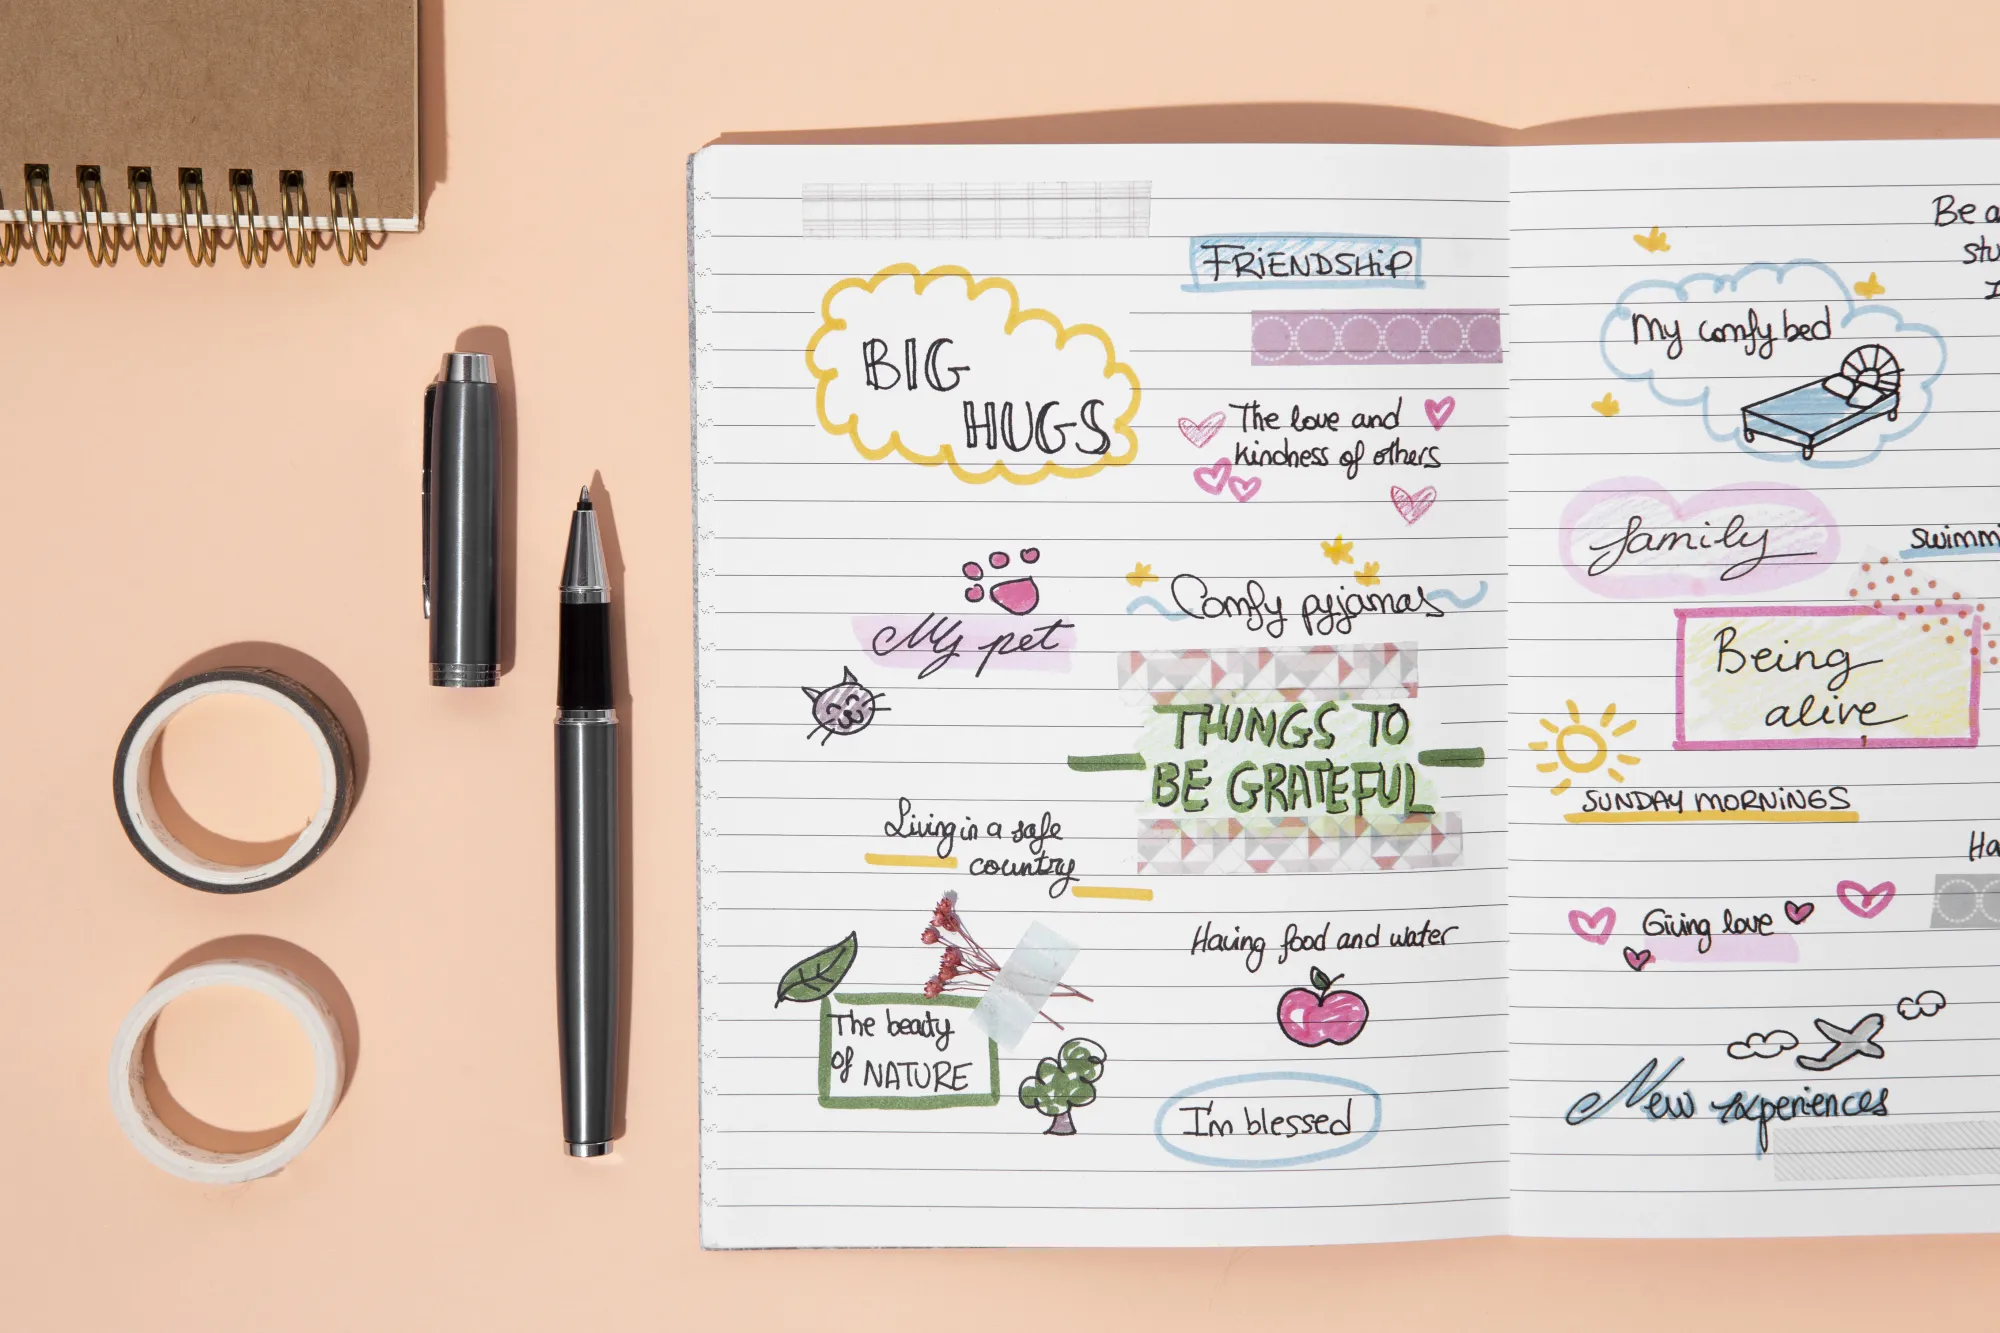 FRiENDSHiP
BIG
HUGS
The love and
kindness of others
Comfy pyjamas
My pet
THINGS TO
BE GRATEFUL
Living in a safe
country
Having food and water
The beauty
of NATURE
I'm blessed
Be a
stu
My comfy bed
family
swimmi
Being
alive
SUNDAY MORNiNGS
Ha
Giving love
New experiences